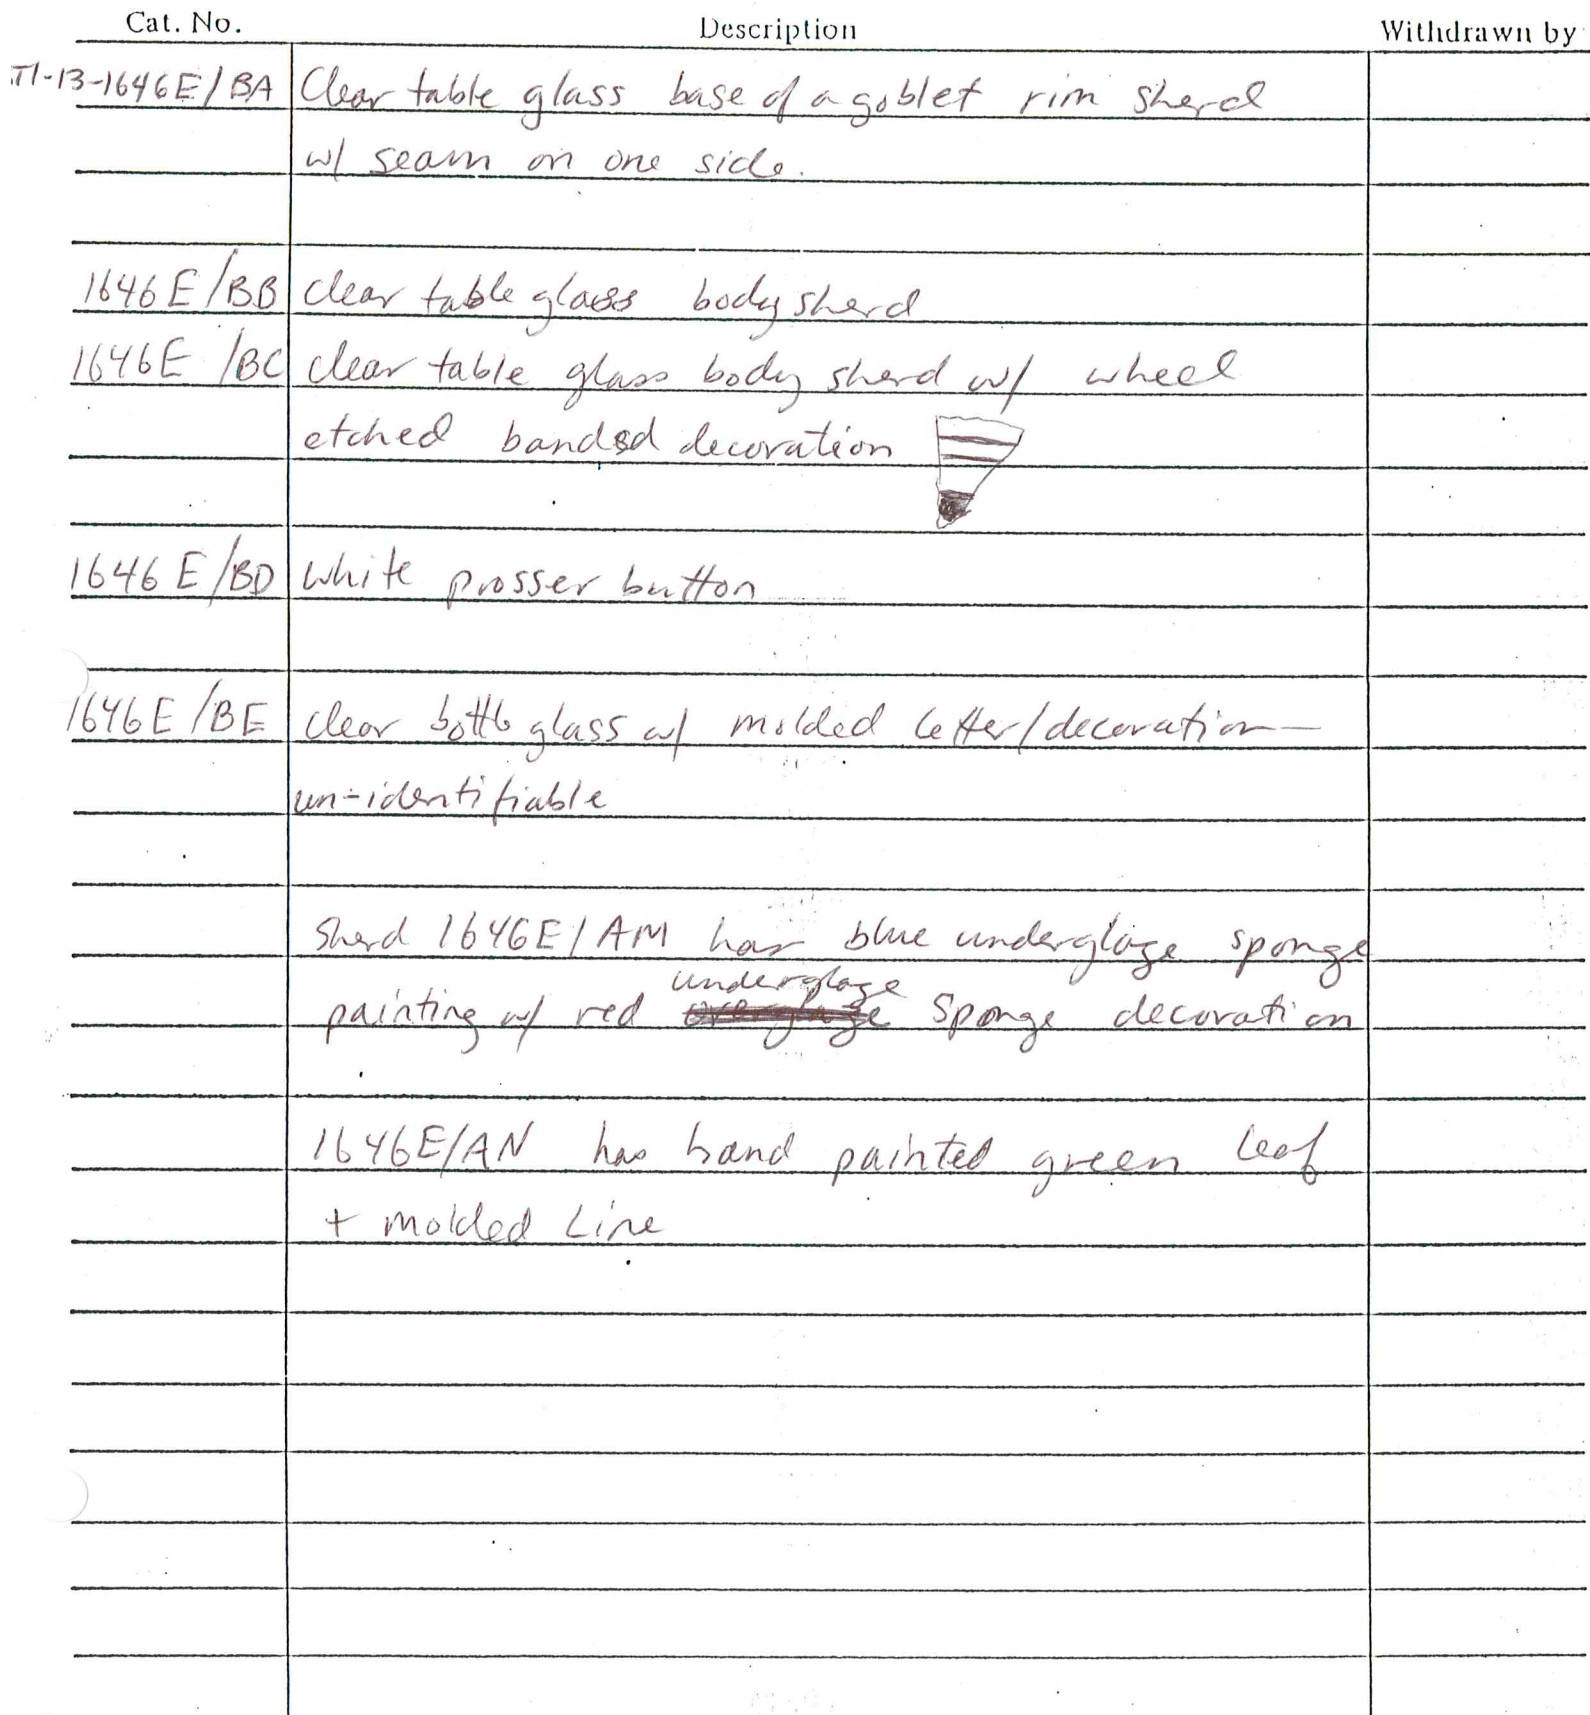 Cat. No. Description Withdrawn by
TI-13-1646E/BA Clear table glass base of a goblet rim sherd
w/ seam on one side.
1646E/BB clear table glass body sherd
1646E/BC clear table glass body sherd w/ wheel
etched banded decoration
1646E/BD white prosser button
1646E/BE clear bottle glass w/ molded letter/decoration—
un-identifiable
Sherd 1646E/AM has blue underglaze sponge
underglaze
painting w/ red overglaze sponge decoration
1646E/AN has hand painted green leaf
+ molded line